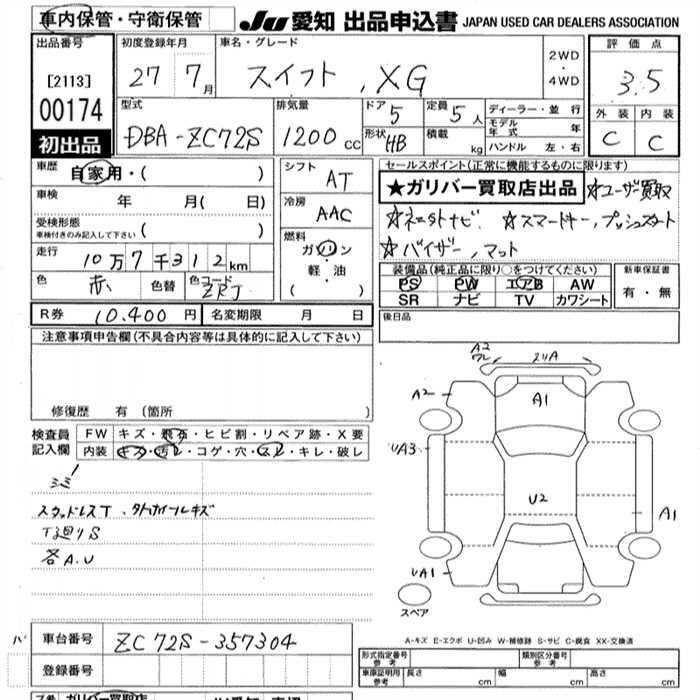 車内保管・守衛保管 JU 愛知 出品申込書 JAPAN USED CAR DEALERS ASSOCIATION
出品番号 初度登録年月 車名・グレード 2WD・4WD 評価点
[2113] 27 年 7月 スイフト, XG 3.5
00174 型式 排気量 ドア 5 定員 5人 ディーラー・並行 外装 内装
初出品 DBA-ZC72S 1200cc 形状 HB 積載 kg モデル年式 年 C C
ハンドル 左・右
車歴 自家用・( ) シフト AT セールスポイント(正常に機能するものに限ります)
車検 年 月( 日) 冷房 AAC ★ガリバー買取店出品 ☆ユーザー買取
受検形態 車検付きのみ記入して下さい ( ) 燃料 ☆スマートキー,プッシュスタート
走行 10万7千312km ガソリン・軽・油 ( ) ☆バイザー,マット
色 赤 色替 色コード ZRJ 装備品(純正品に限り○をつけてください) 新車保証書
PS PW エアB AW 有・無
SR ナビ TV カワシート
R券 10,400円 名変期限 月 日 後日品
注意事項申告欄(不具合内容等は具体的に記入して下さい)
修復歴 有(箇所 )
検査員記入欄 FW キズ・飛石・ヒビ割・リペア跡・X要
内装 キズ・汚レ・コゲ・穴・スレ・キレ・破レ
スタッドレスT
各A.U
A2 A1
A2
UA3
U2
A1
UA1
スペア
A-キズ E-エクボ U-凹み W-補修跡 S-サビ C-腐食 XX-交換済
車台番号 ZC72S-357304
登録番号
形式指定番号 参考 類別区分番号 参考
車庫証明用 参考 長さ cm 幅 cm 高さ cm
ガリバー買取店